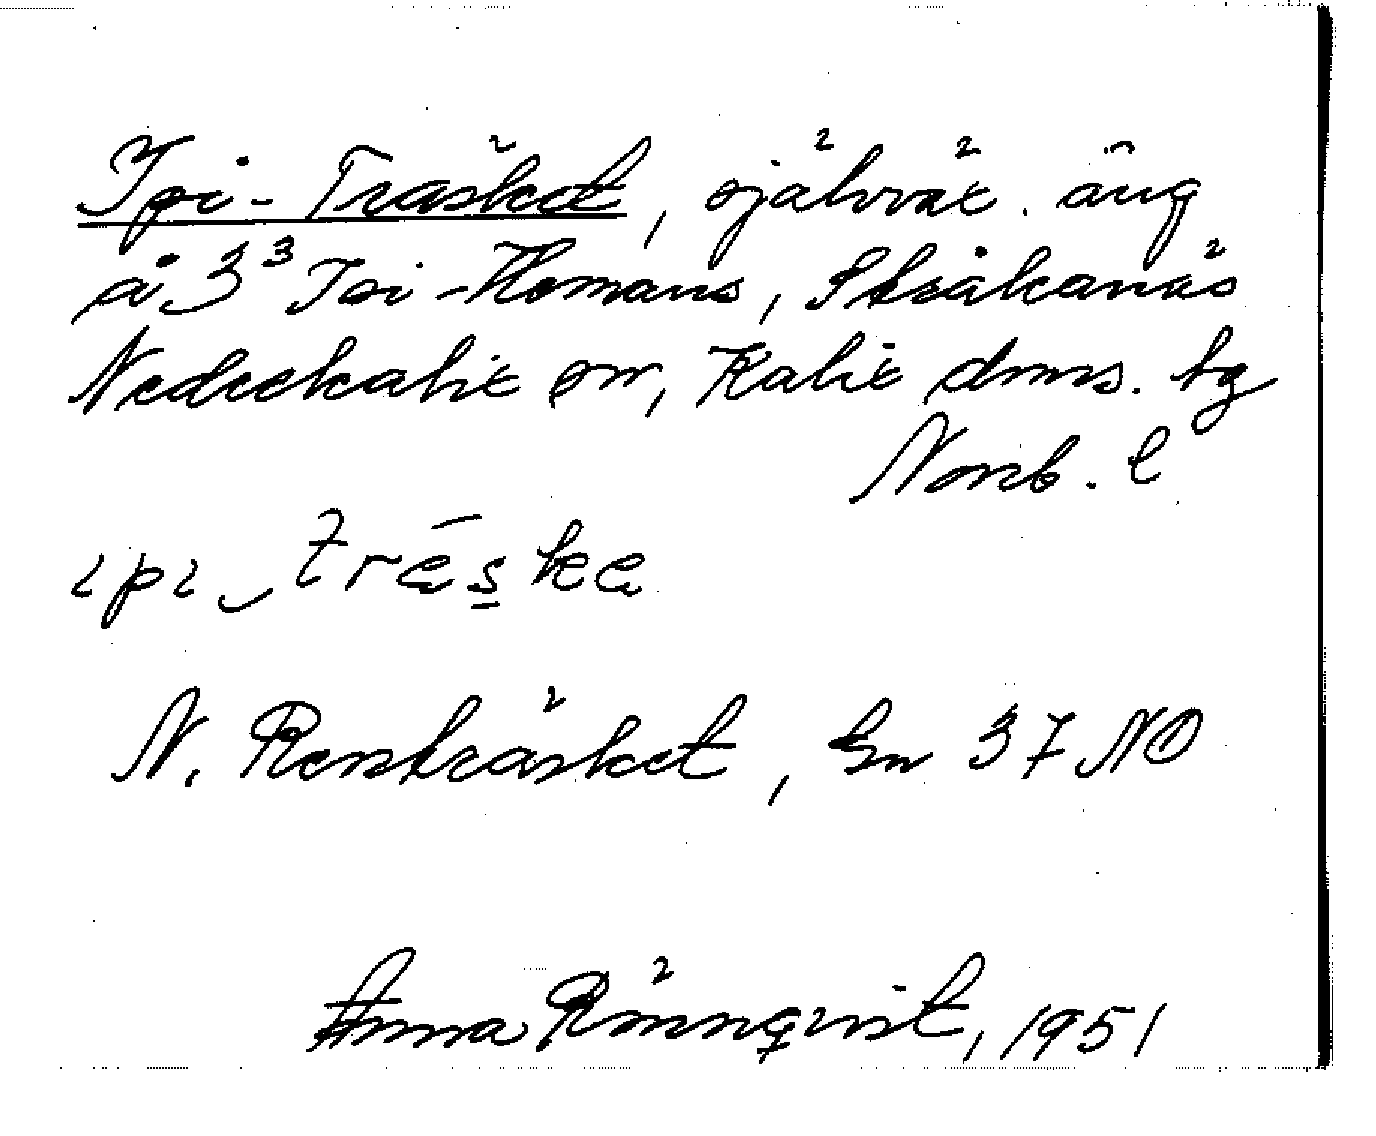 Ipi-Träsket, självväx. äng
å 3³ Ipi-Homans, Stråkanäs
Nederkalix sn, Kalix dmrs. tg
Norrb. l
ɩpɩ‿trēs̠ke
N. Renträsket, Gn 37 NO
Anna Rönnqvist, 1951